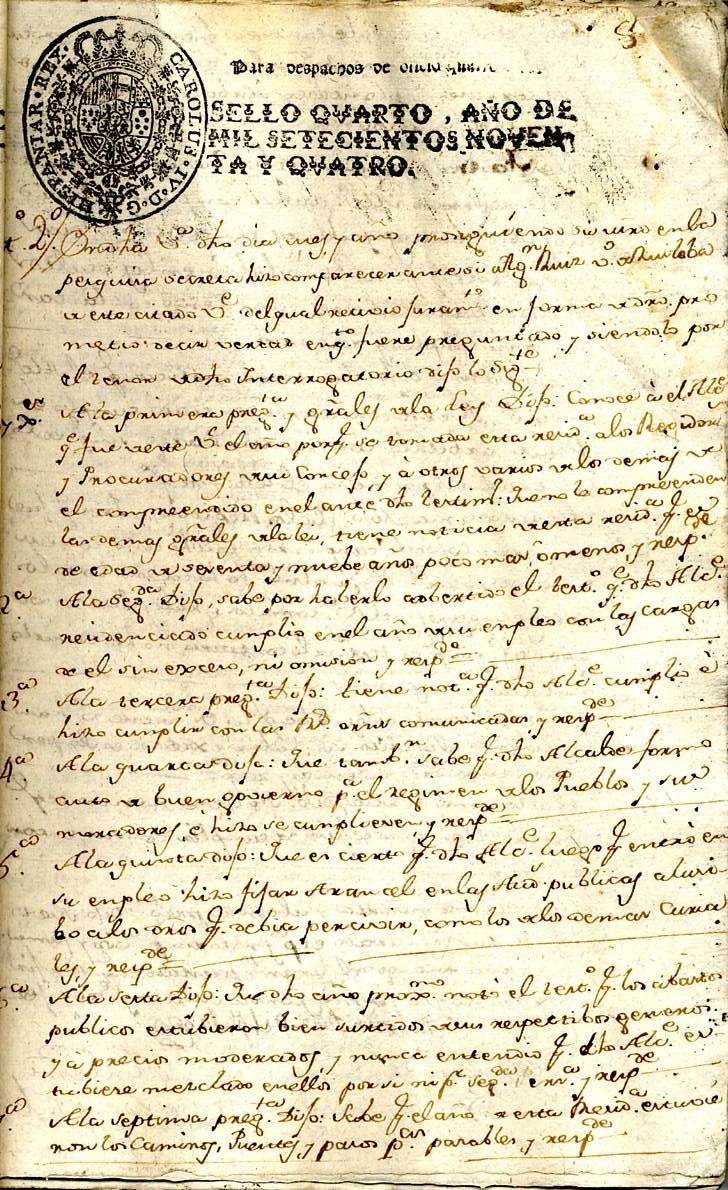 8
Para despachos de oficio
CAROLUS·IV·D·G·HISPANIAR·REX·
SELLO QVARTO, AÑO DE
MIL SETECIENTOS NOVEN
TA Y QVATRO.
t.º 2.º En dha V.ª dho dia mes y año prosiguiendo su mrd en la
pesquisa secreta hizo comparecer ante si a
de este citado V.º del qual recivio juram.to en forma de dro. pro
metio decir verdad en q.to fuere preguntado y siendolo por
el tenor de dho Interrogatorio dijo lo sig.te
A la primera preg.ta y grales de la Ley Dijo: Conoce à el Alc.e
q.e fue de este V.e el año porq.e se tomada esta resid.a a los Regidores
y Procuradores de su Concejo, y à otros varios de los demas de
el compreendido en el ante dho testim.o que no le compreenden
las demas grales de la lei, tiene noticia de esta resid.a q.e es
de edad de setenta y nuebe años poco mas, ò menos, y resp.de
2.ª A la seg.da Dijo, sabe por haberlo adbertido el test.o q.e dho Alc.e
residenciado cumplio en el año de su empleo con las cargas
de el sin exceso, ni omision y resp.de
3.ª A la tercera preg.ta Dijo: tiene not.a q.e dho Alc.e cumplio è
hizo cumplir con las R.s orns comunicadas y resp.de
4.ª A la quarta dijo: Que tamb.n sabe q.e dho Alcalde formo
auto de buen govierno p.a el regimen de los Pueblos y sus
moradores, è hizo se cumpliesen y resp.de
5.ª A la quinta dijo: Que es cierto q.e dho Alc.e luego q.e entrò en
su empleo hizo fijar Arancel en las Aud.s publicas alusi-
bo a los dros q.e debia percivir, como los de los demas Curia
les, y resp.de
6.ª A la sesta Dijo: Que dho año prox.mo notò el test.o q.e los abastos
publicos estubieron bien surtidos de sus respectibos generos
y à precios moderados y nunca entendio q.e dho Alc.e es-
tubiese mezclado en ellos por si ni p.r seg.da y resp.de
A la septima preg.ta Dijo: Sabe q.e el año de esta Resid.a estuvie
ron los Caminos, Puentes, y pasos p.cos pasables, y resp.de